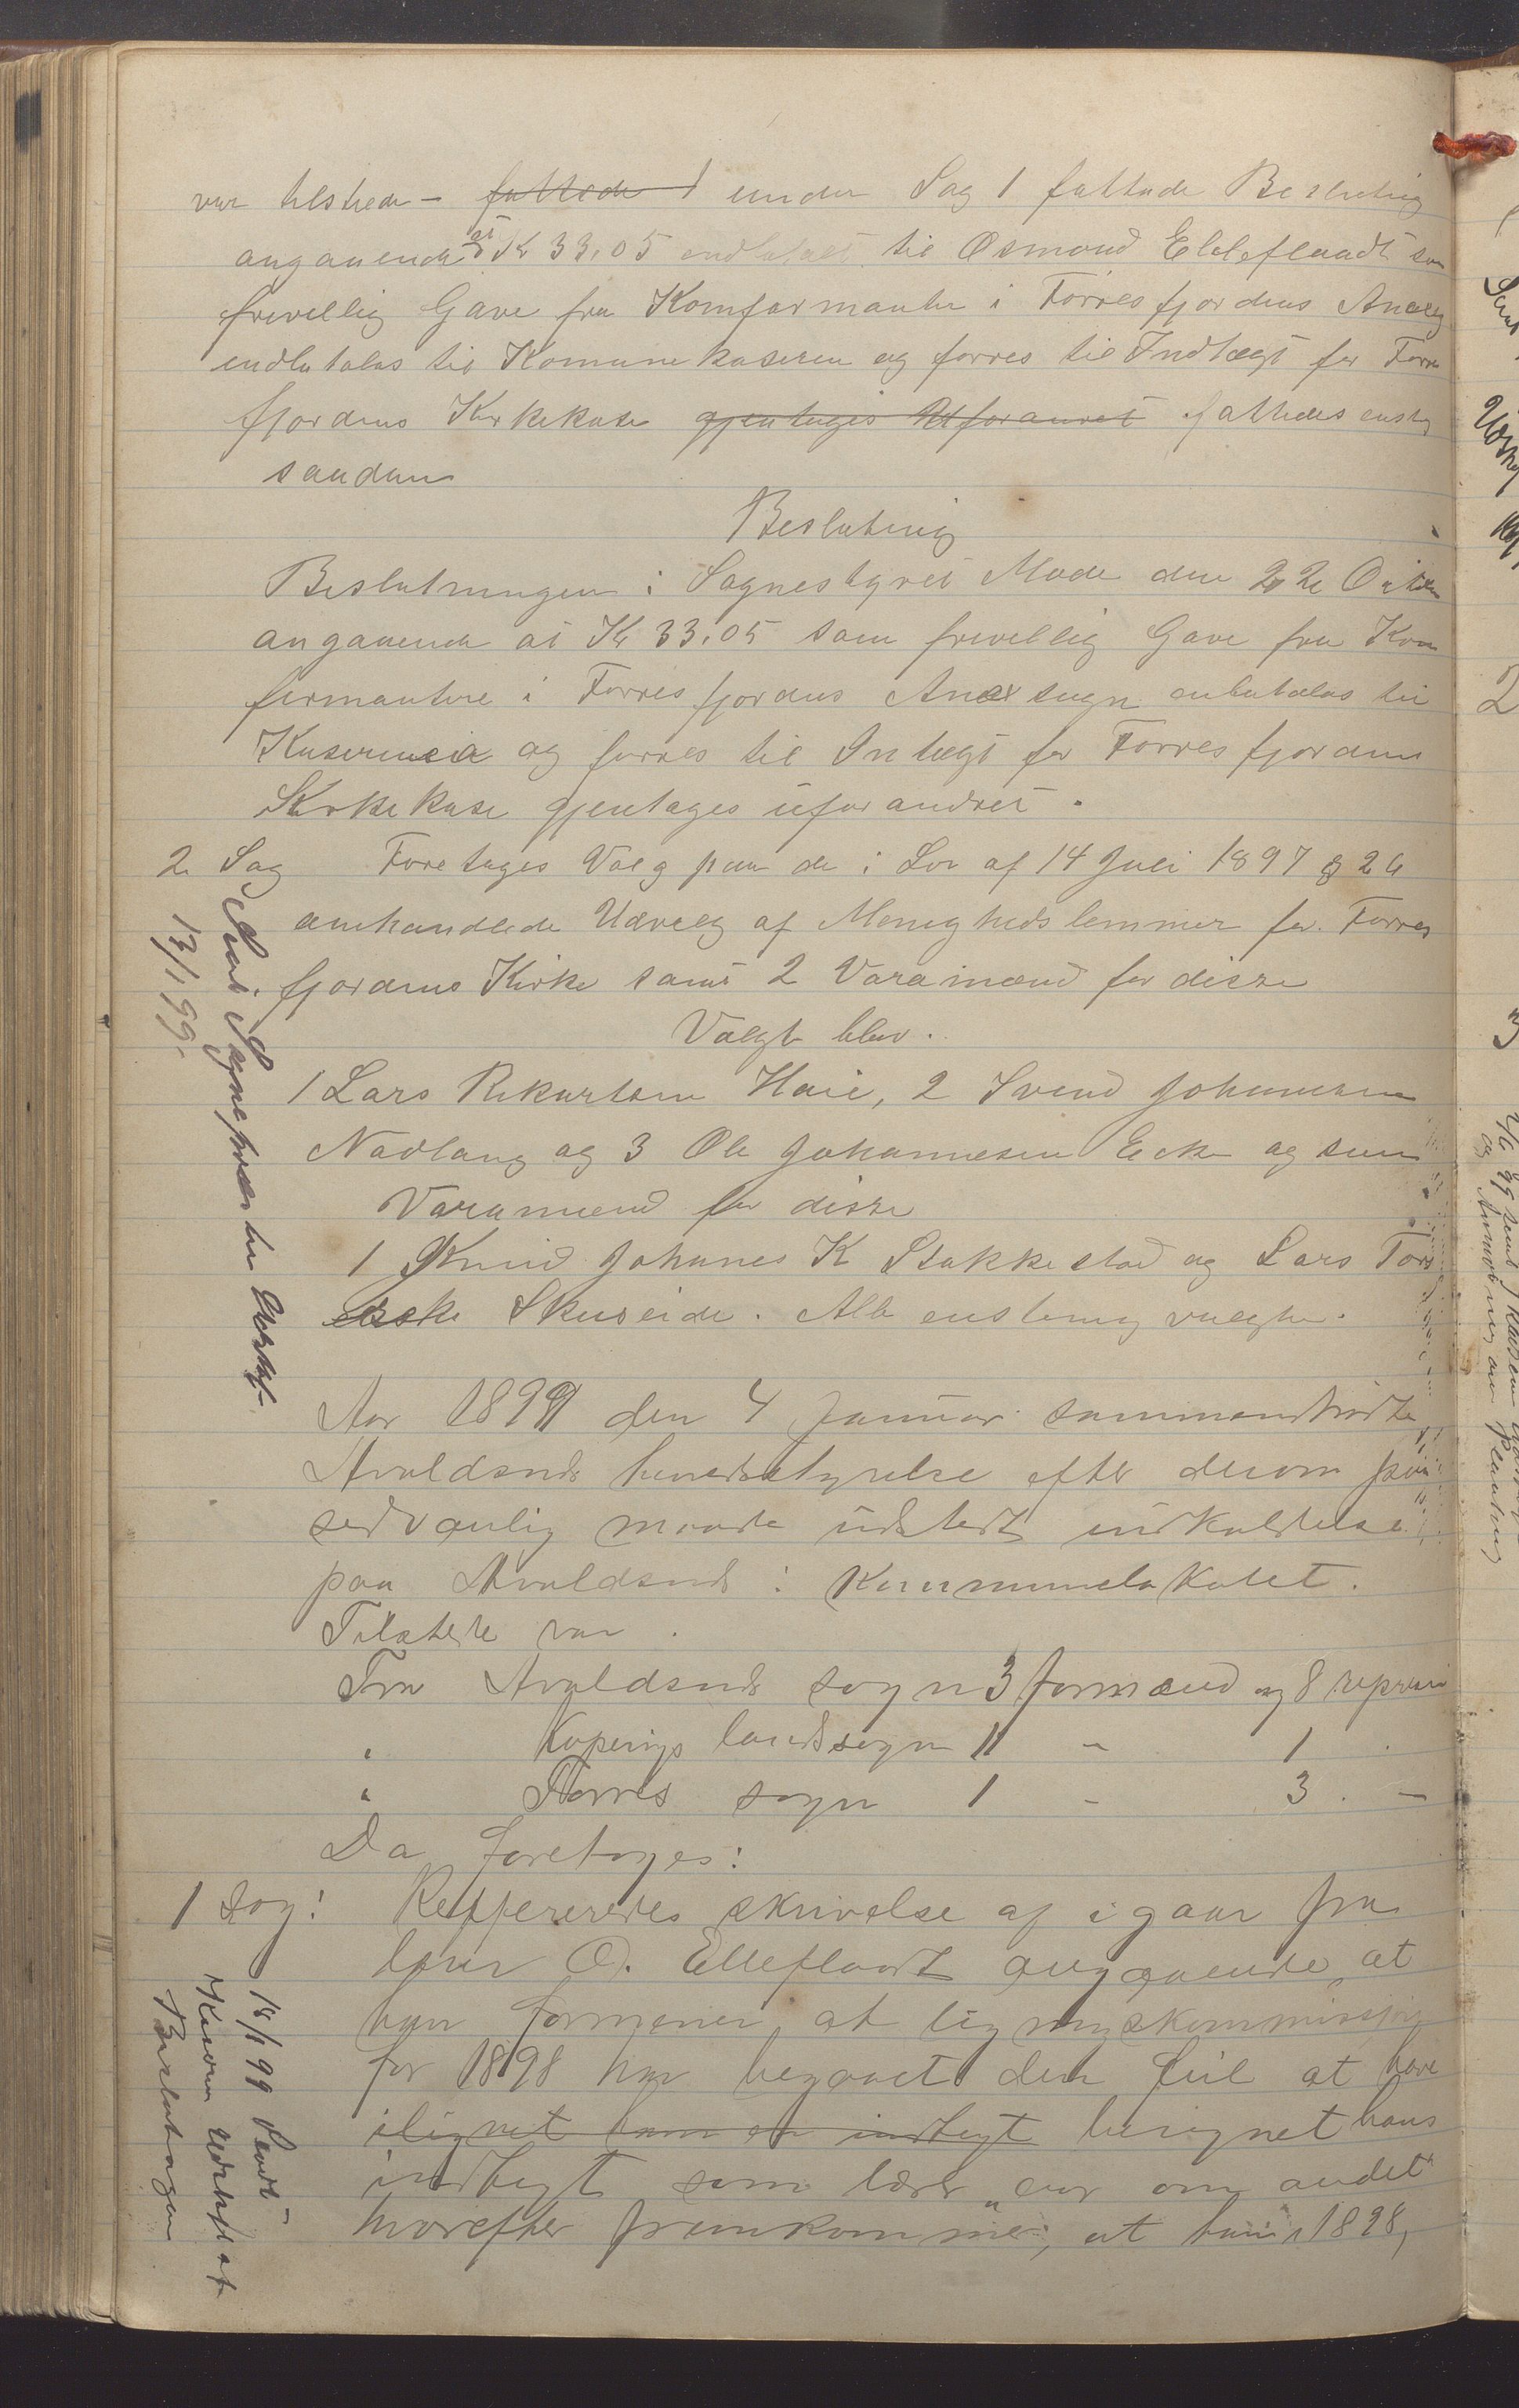 var tilstede - fattede 1 under Sag 1 fattede Beslutnig
angaaende at Kr 33,05 indbetalt til Osmond Elleflaadt som
frivellig Gave fra Komfarmanter i Førresfjordens Anex
indbetales til Komunekaseren og førres til Indtægt for Førres
fjordens Kirkekase gjentages Uforanret fattedes enste
saadan
Beslutnig
Beslutningen i Sognestyret Møde den 22 Oktbr
angaaende at Kr 33,05 som frivellig Gave fra Kon
firmantere i Førresfjordens Anex sogn inbetales til
Kaseren og førres til Intægt for Førresfjordens
Kirkekase gjentages uforandret.
2 Sag Foretages Valg paa de i Lov af 14 Juli 1897 § 26
omhandlede Udvalg af Menigheds lemmer for Førres
fjordens Kirke samt 2 Varamænd for disse
Valgt blev.
1 Lars Rikartsen Haie, 2 Svend Johannesen
Nadlang og 3 Ole Johannesen Eike og som
Varamænd for disse
1 Knud Johanes K Stakkestad og Lars Tors
Skeiseide. Alle enstemig valgte.
Sent Sognepræsten Udskrf.
13/1 99.
Aar 1899 den 4 Januar sammentraadte
Avaldsnds herredsstyrelse efter derom paa
sedvanlig maade udstedt indkaldelse
paa Avaldsnds i Kummunelokalet.
Tilstede var.
Fra Avaldsnds sogn 3 formænd og 8 repres
" Kopervigs landsogn 11 - 1
" Førres sogn 1 - 3. -
Da foretoges:
1 Sag: Reffereredes skrivelse af igaar fra
lærer O. Elleflaadt angaaende, at
han formener at ligningskommission
for 1898 har begaaet den feil at have
ilignet ham en indtegt beregnet hans
indtegt som lærer, om andet
hvorefter fremkommer, at han i 1898,
18/1 99 Sendt
Udskrift af
Beslutningen